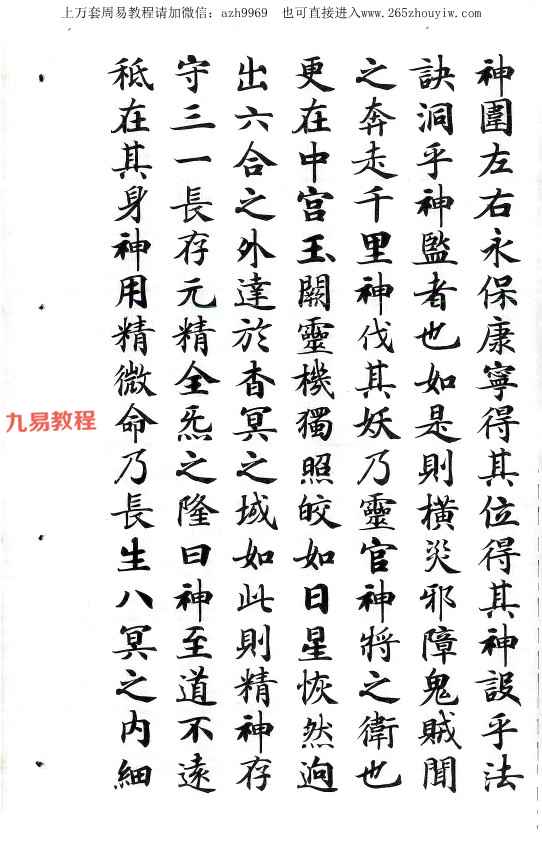 上万套周易教程请加微信：azh9969 也可直接进入www.265zhouyiw.com
神圍左右永保康寧得其位得其神設乎法
訣洞乎神監者也如是則橫災邪障鬼賊聞
之奔走千里神伐其妖乃靈官神將之衛也
更在中宮玉闕靈機獨照皎如日星恢然逈
出六合之外達於杳冥之域如此則精神存
守三一長存元精全炁之隆曰神至道不遠
秪在其身神用精微命乃長生八冥之內細
九易教程